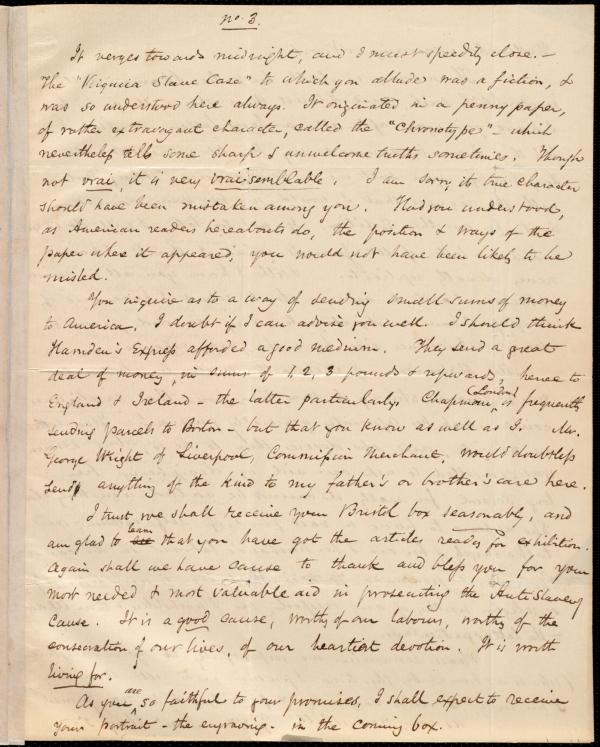 no. 3.
It verges towards midnight, and I must speedily close. –
The "Virginia Slave Case" to which you allude was a fiction, &
was so understood here always. It originated in a penny paper,
of rather extravagant character, called the "Chronotype" – which
nevertheless tells some sharp & unwelcome truths sometimes. Though
not vrai, it is very vraisemblable. I am sorry its true character
should have been mistaken among you. Had you understood,
as American readers hereabouts do, the position & ways of the
paper where it appeared, you would not have been likely to be
misled.
You inquire as to a way of sending small sums of money
to America. I doubt if I can advise you well. I should think
Harnden's Express afforded a good medium. They send a great
deal of money, in sums of 1, 2, 3 pounds & upwards, hence to
England & Ireland – the latter particularly. Chapman, (London) is frequently
sending parcels to Boston – but that you know as well as I. Mr.
George Wight of Liverpool, Commission Merchant, would doubtless
send anything of the kind to my father's or brother's care here.
I trust we shall receive your Bristol box seasonably, and
am glad to learn that you have got the articles ready for exhibition.
Again shall we have cause to thank and bless you for your
most needed & most valuable aid in prosecuting the Anti Slavery
cause. It is a good cause, worthy of our labours, worthy of the
consecration of our lives, of our heartiest devotion. It is worth
living for.
As you are so faithful to your promises, I shall expect to receive
your portrait – the engraving – in the coming box.